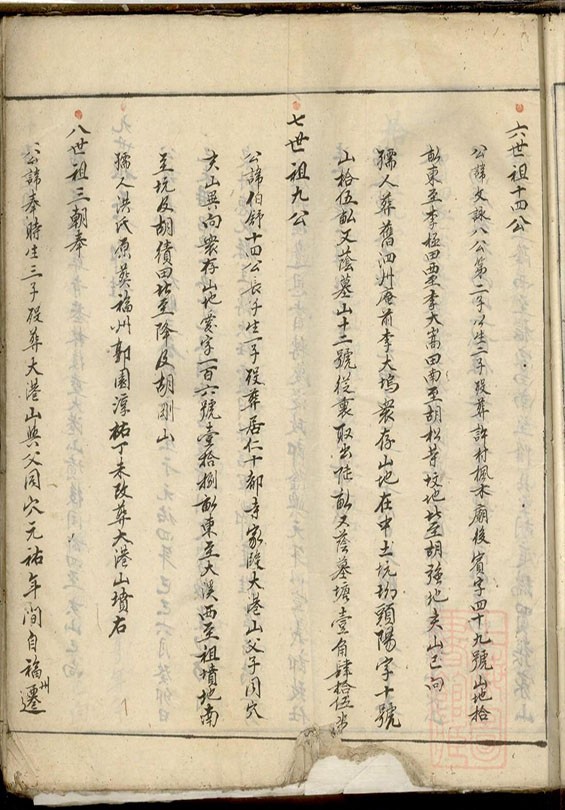 六世祖十四公
公諱文詠八公第二子公生二子歿葬許村楓木廟後賓字四十九號山地拾
畝東至李極田西至李大嵩田南至胡松芽墳地北至胡強地夾山巳向
孺人葬舊泗州庵前李大塢衆存山地在中土坑坳頭陽字十號
山拾伍畝又蔭墓山十二號從裏取出陡畝又蔭墓塘壹角肆拾伍步
七世祖九公
公諱伯舒十四公長子生一子歿葬居仁十都寺家段大港山父子同穴
夾山巽向衆存山地賓字一百六號壹拾捌畝東至大溪西至祖墳地南
至坑及胡績田北至降及胡剛山
孺人洪氏原葬福州郭園淳祐丁未改葬大港山墳右
八世祖三朝奉
公諱奉時生三子歿葬大港山與父同穴元祐年間自福州遷